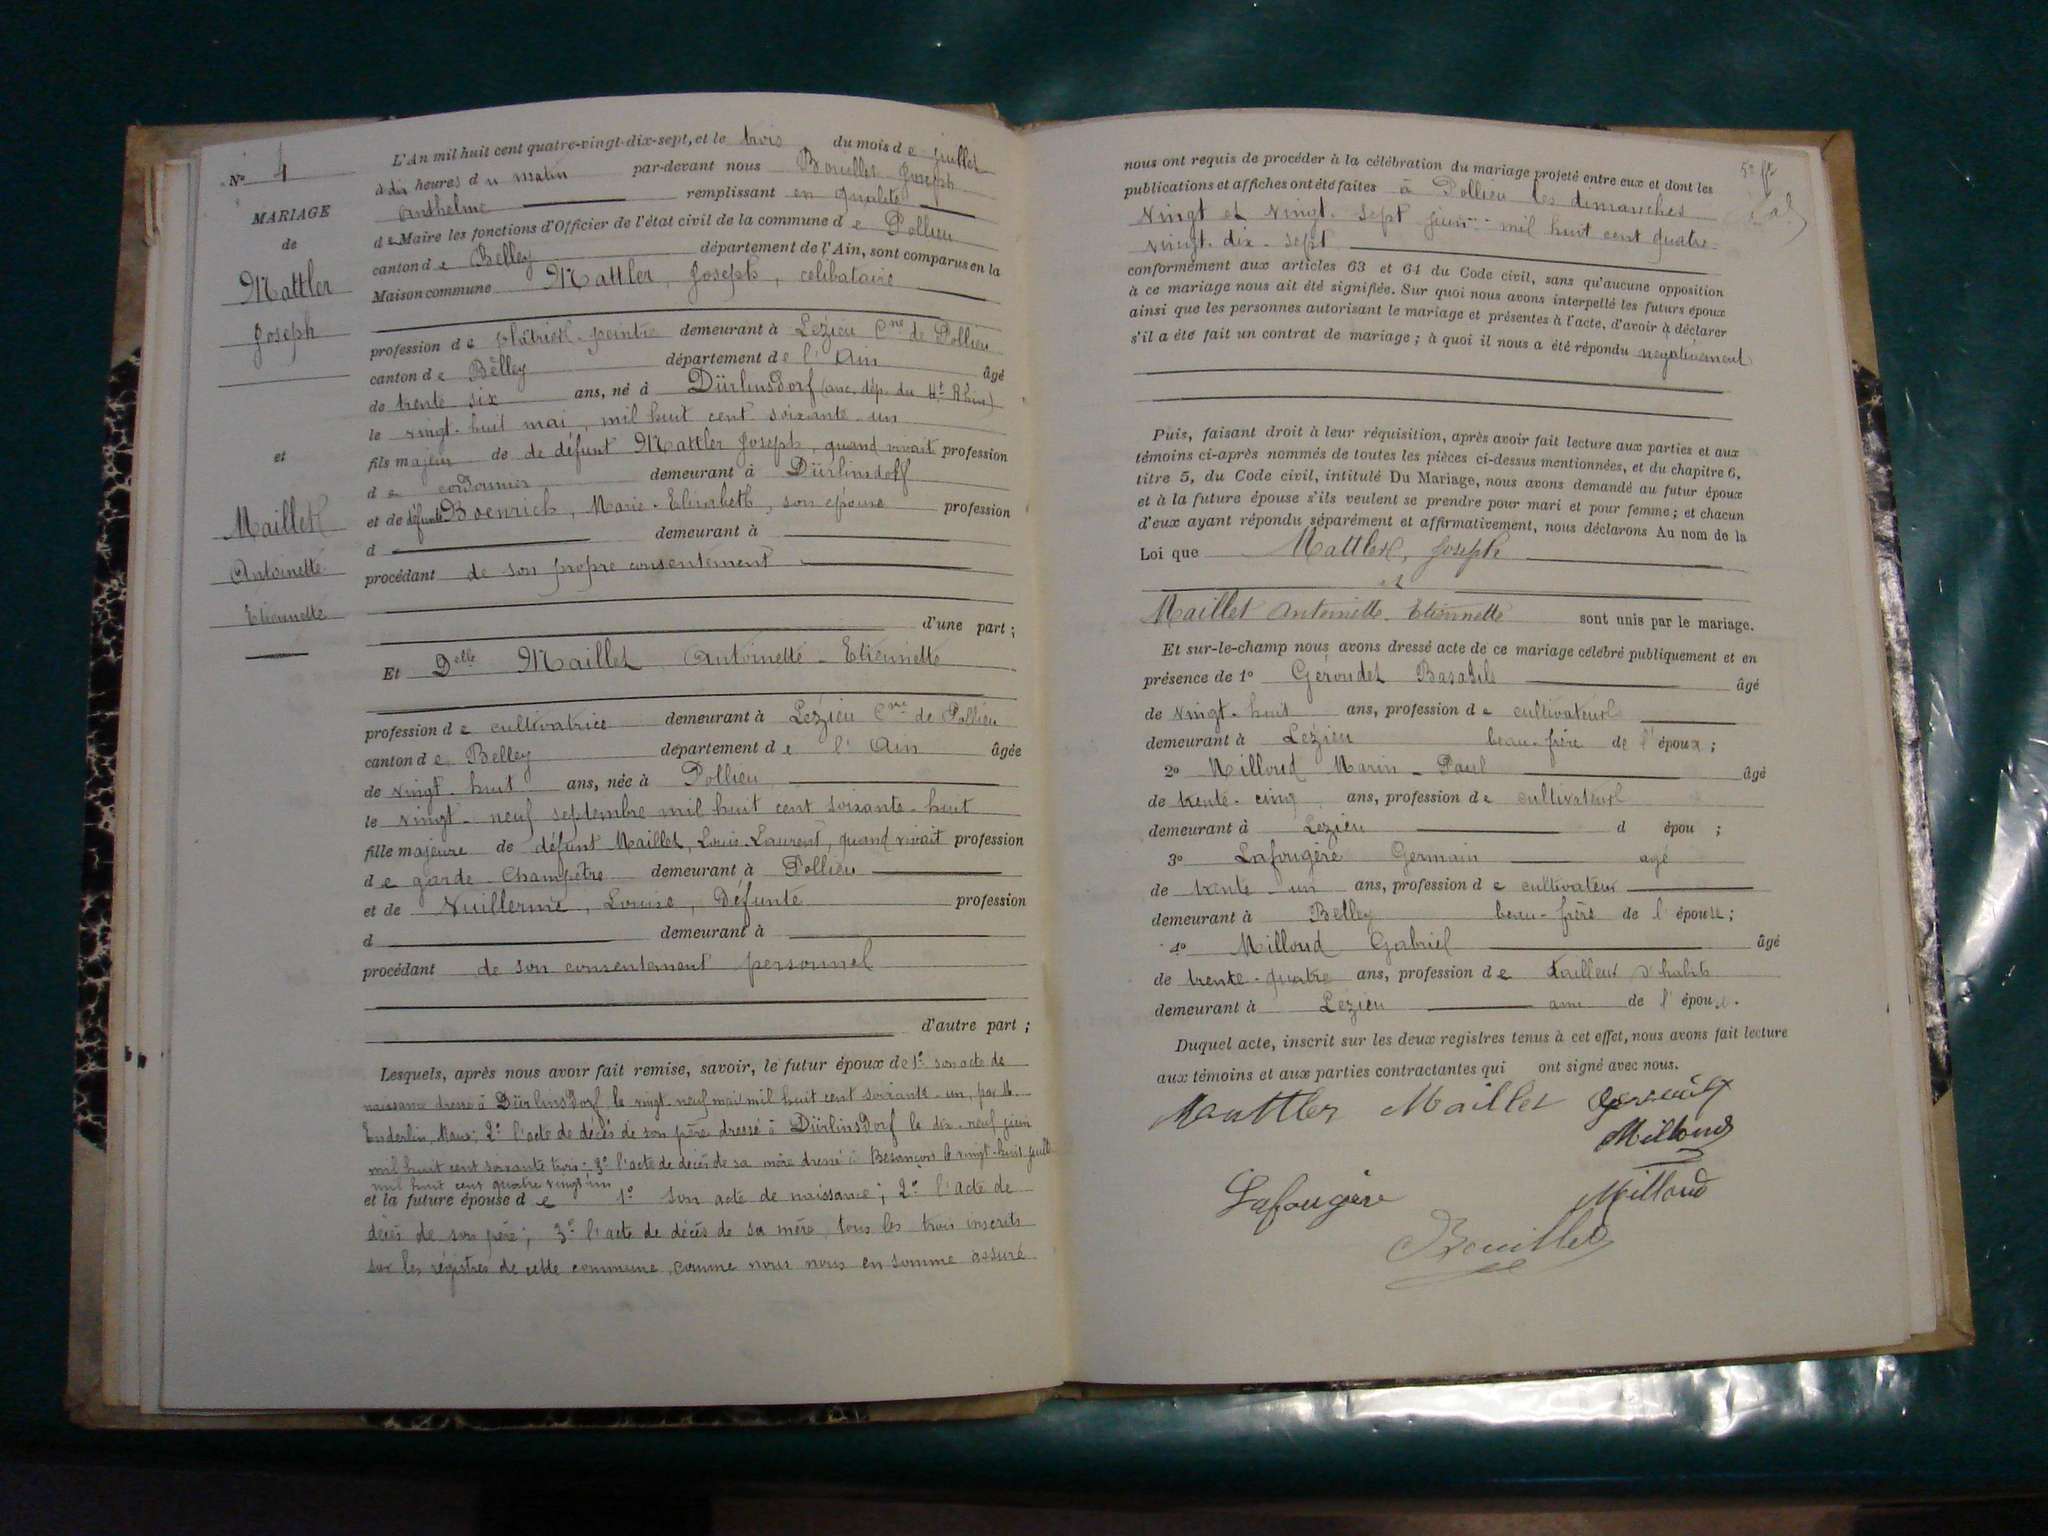 No 4
MARIAGE
de
Mattler
Joseph
et
Maillet
Antoinette
Etiennette
L'An mil huit cent quatre-vingt-dix-sept, et le trois du mois de juillet
à dix heures du matin par-devant nous Bouillet Joseph
Anthelme remplissant en qualité
de Maire les fonctions d'Officier de l'état civil de la commune de Pollieu
canton de Belley département de l'Ain, sont comparus en la
Maison commune Mattler, Joseph, célibataire
profession de plâtrier-peintre demeurant à Lézieu Cne de Pollieu
canton de Belley département de l'Ain âgé
de trente six ans, né à Dürlinsdorf (anc. dép. du Ht Rhin)
le vingt-huit mai, mil huit cent soixante-un
fils majeur de de défunt Mattler Joseph, quand vivait profession
de cordonnier demeurant à Dürlinsdorf
et de défunte Boenrich, Marie-Elisabeth, son épouse profession
d demeurant à
procédant de son propre consentement
d'une part;
Et Delle Maillet Antoinette-Etiennette
profession de cultivatrice demeurant à Lézieu Cne de Pollieu
canton de Belley département de l'Ain âgée
de vingt-huit ans, née à Pollieu
le vingt-neuf septembre mil huit cent soixante-huit
fille majeure de défunt Maillet, Louis-Laurent, quand vivait profession
de garde-Champêtre demeurant à Pollieu
et de Vuillerme, Louise, Défunte profession
d demeurant à
procédant de son consentement personnel
d'autre part;
Lesquels, après nous avoir fait remise, savoir, le futur époux de 1º son acte de
naissance dressé à Dürlinsdorf le vingt-neuf mai mil huit cent soixante-un, par M.
Enderlin, Maire; 2º l'acte de décès de son père dressé à Dürlinsdorf le dix-neuf juin
mil huit cent soixante trois; 3º l'acte de décès de sa mère dressé à Besançon le vingt-huit
mil huit cent quatre vingt un
et la future épouse de 1º son acte de naissance; 2º l'acte de
décès de son père; 3º l'acte de décès de sa mère, tous les trois inscrits
sur les régistres de cette commune, comme nous nous en somme assuré
nous ont requis de procéder à la célébration du mariage projeté entre eux et dont les
publications et affiches ont été faites à Pollieu les dimanches
Vingt et Vingt-sept juin mil huit cent quatre-
vingt-dix-sept
conformément aux articles 63 et 64 du Code civil, sans qu'aucune opposition
à ce mariage nous ait été signifiée. Sur quoi nous avons interpellé les futurs époux
ainsi que les personnes autorisant le mariage et présentes à l'acte, d'avoir à déclarer
s'il a été fait un contrat de mariage; à quoi il nous a été répondu négativement
Puis, faisant droit à leur réquisition, après avoir fait lecture aux parties et aux
témoins ci-après nommés de toutes les pièces ci-dessus mentionnées, et du chapitre 6,
titre 5, du Code civil, intitulé Du Mariage, nous avons demandé au futur époux
et à la future épouse s'ils veulent se prendre pour mari et pour femme; et chacun
d'eux ayant répondu séparément et affirmativement, nous déclarons Au nom de la
Loi que Mattler, Joseph
et
Maillet Antoinette-Etiennette sont unis par le mariage.
Et sur-le-champ nous avons dressé acte de ce mariage célébré publiquement et en
présence de 1º Geroudet âgé
de vingt-huit ans, profession de cultivateur
demeurant à Lezieu beau-frère de l'époux;
2º Milloud Marin-Paul âgé
de trente-cinq ans, profession de cultivateur
demeurant à Lezieu d épou ;
3º Lafougère Germain agé
de trente-un ans, profession de cultivateur
demeurant à Belley beau-frère de l'épouse;
4º Milloud Gabriel âgé
de trente-quatre ans, profession de tailleur d'habits
demeurant à Lézieu ami de l'épouse.
Duquel acte, inscrit sur les deux registres tenus à cet effet, nous avons fait lecture
aux témoins et aux parties contractantes qui ont signé avec nous.
Mattler Maillet
Milloud
Lafougère Milloud
Bouillet